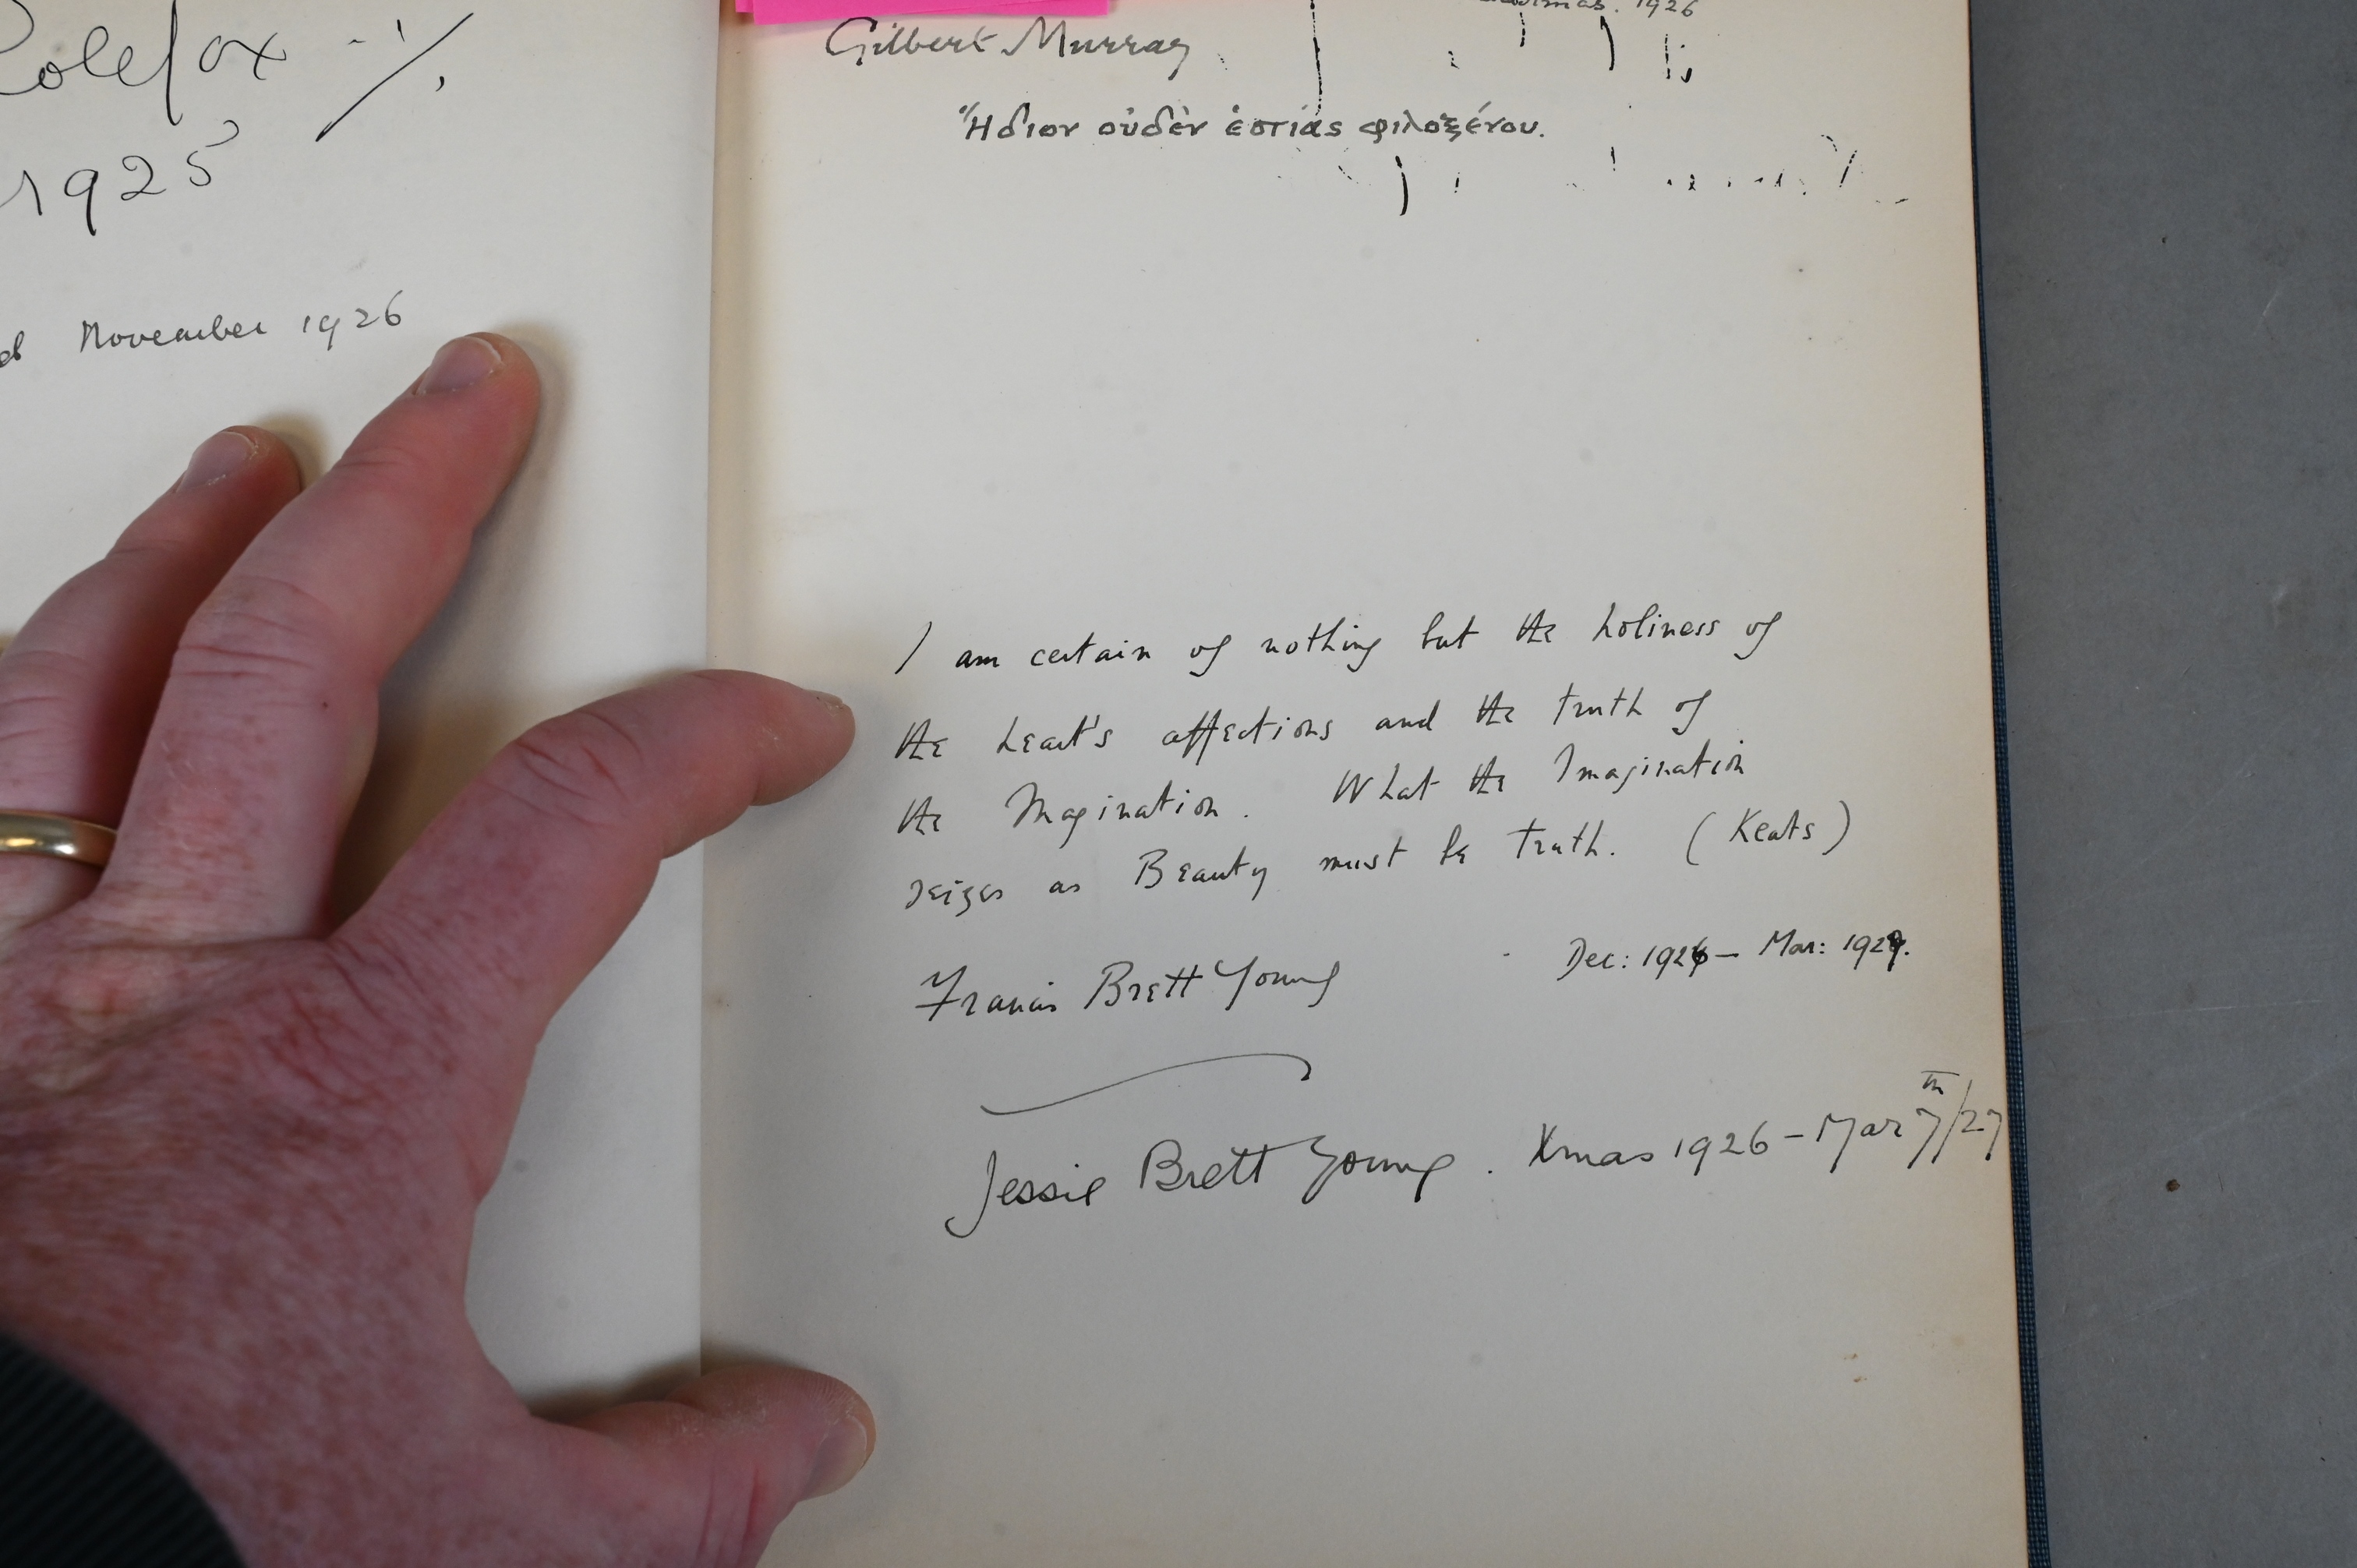 Colefox
1925
November 1926
1926
Gilbert Murray
Ἥδιον οὐδὲν ἑστίας φιλοξένου.
I am certain of nothing but the holiness of
the heart's affections and the truth of
the Imagination. What the Imagination
seizes as Beauty must be truth. (Keats)
Francis Brett Young Dec: 1926 – Mar: 1927.
Jessie Brett Young. Xmas 1926 – Mar 7th/27